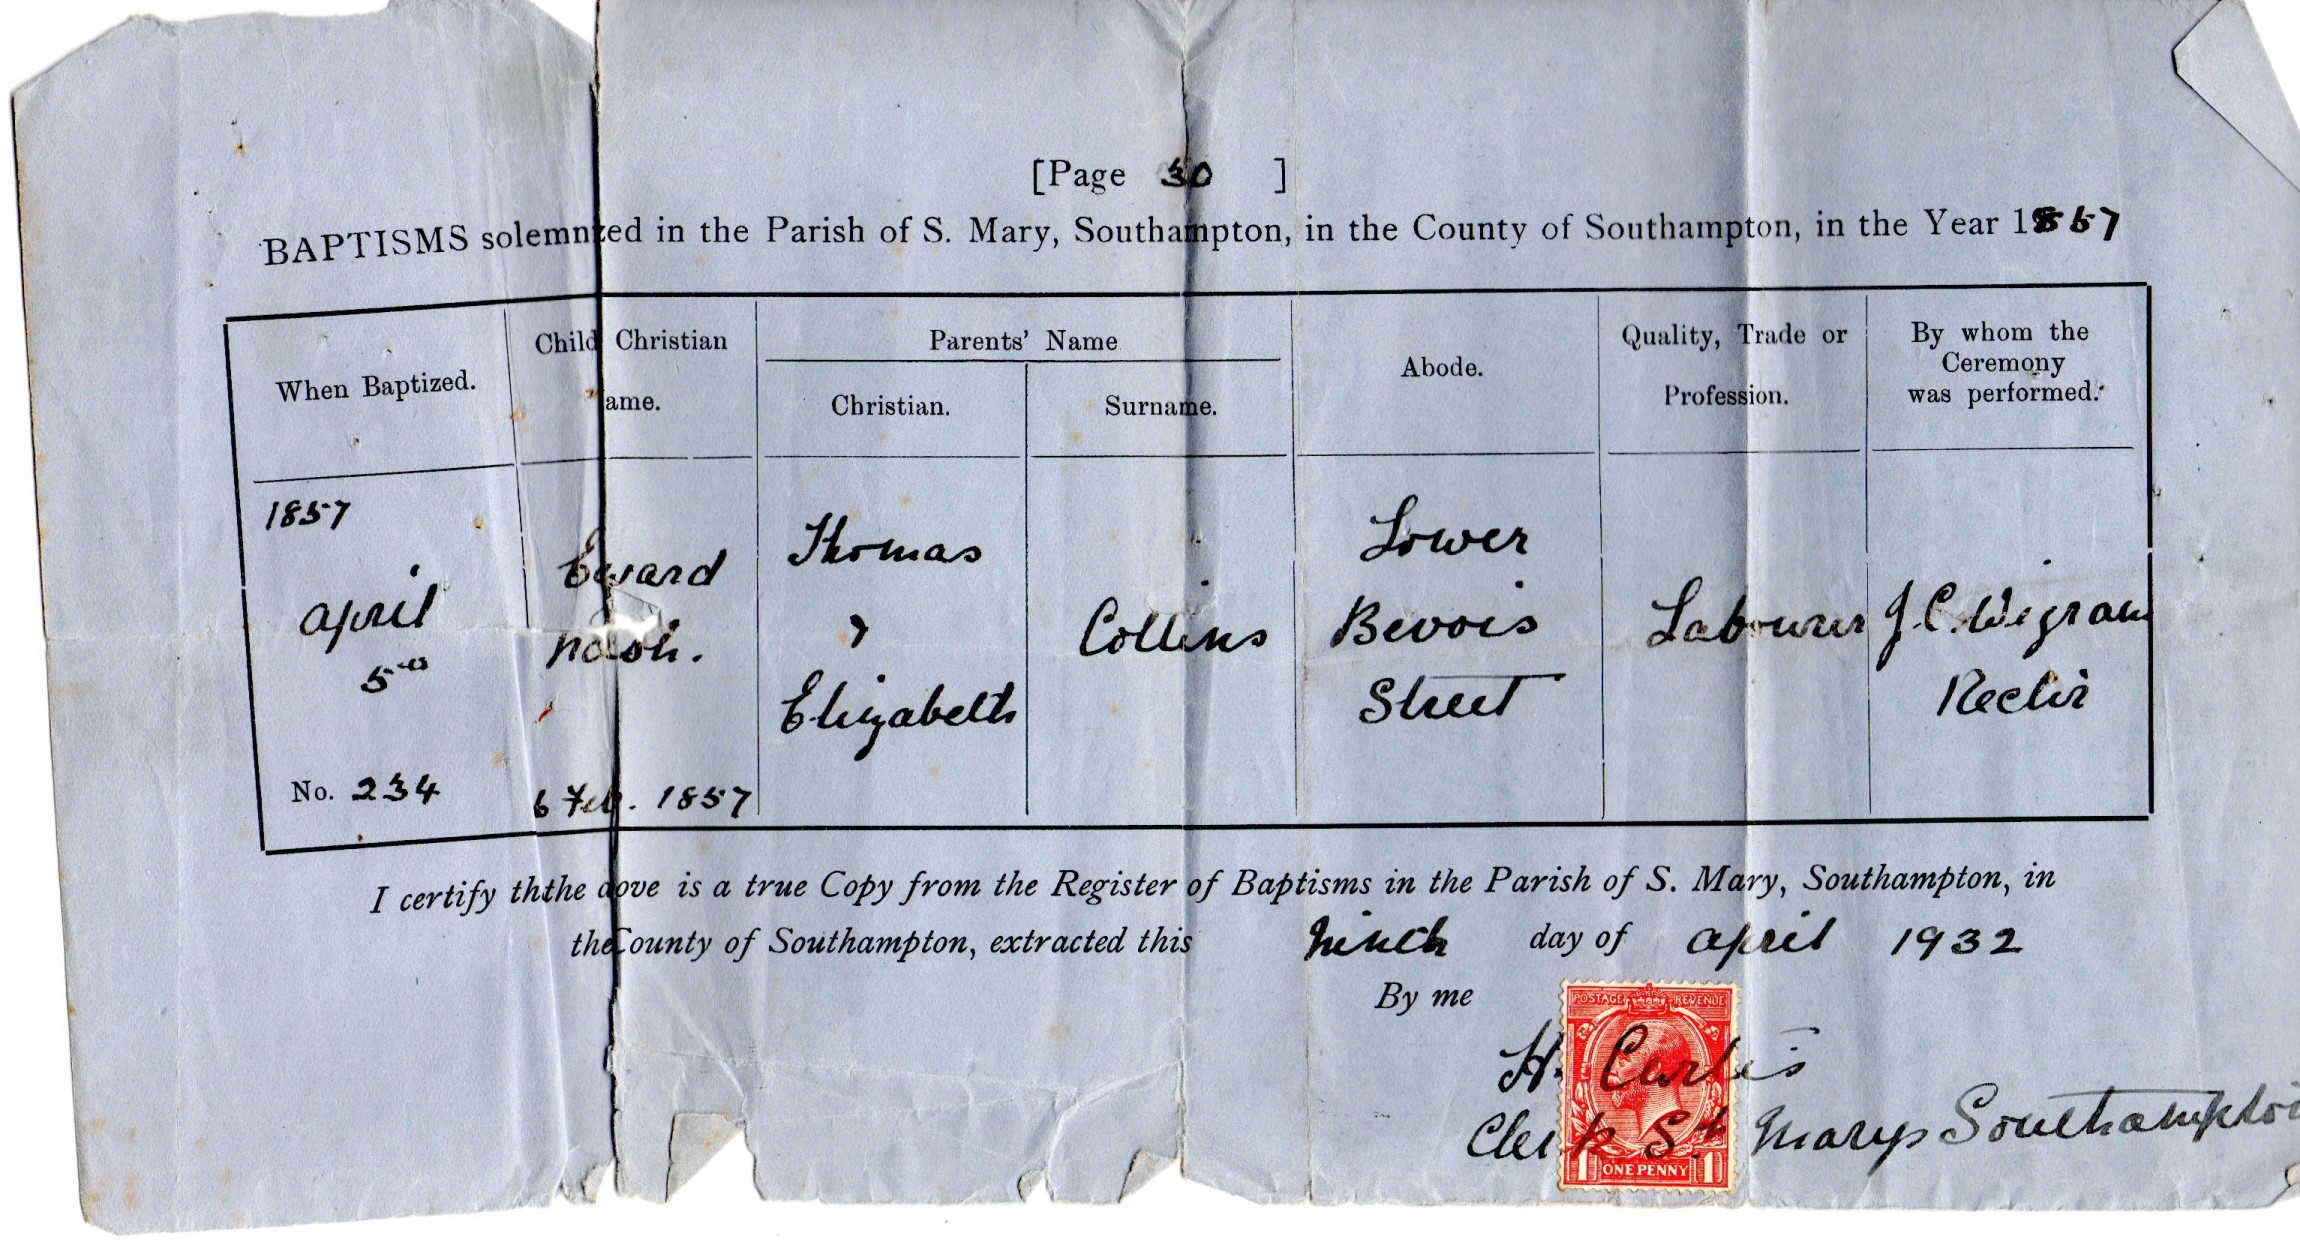 [Page 30 ]
BAPTISMS solemnzed in the Parish of S. Mary, Southampton, in the County of Southampton, in the Year 1857
When Baptized.
Child Christian
ame.
Parents' Name
Christian.
Surname.
Abode.
Quality, Trade or
Profession.
By whom the
Ceremony
was performed.
1857
April
5
No. 234
Eward
Nash.
6 Feb. 1857
Thomas
&
Elizabeth
Collins
Lower
Bevois
Street
Labourer
J. C. Wigram
Rector
I certify ththe aove is a true Copy from the Register of Baptisms in the Parish of S. Mary, Southampton, in
the County of Southampton, extracted this ninth day of April 1932
By me
H. Curtis
Clerk St Marys Southampton
POSTAGE REVENUE
1 ONE PENNY 1